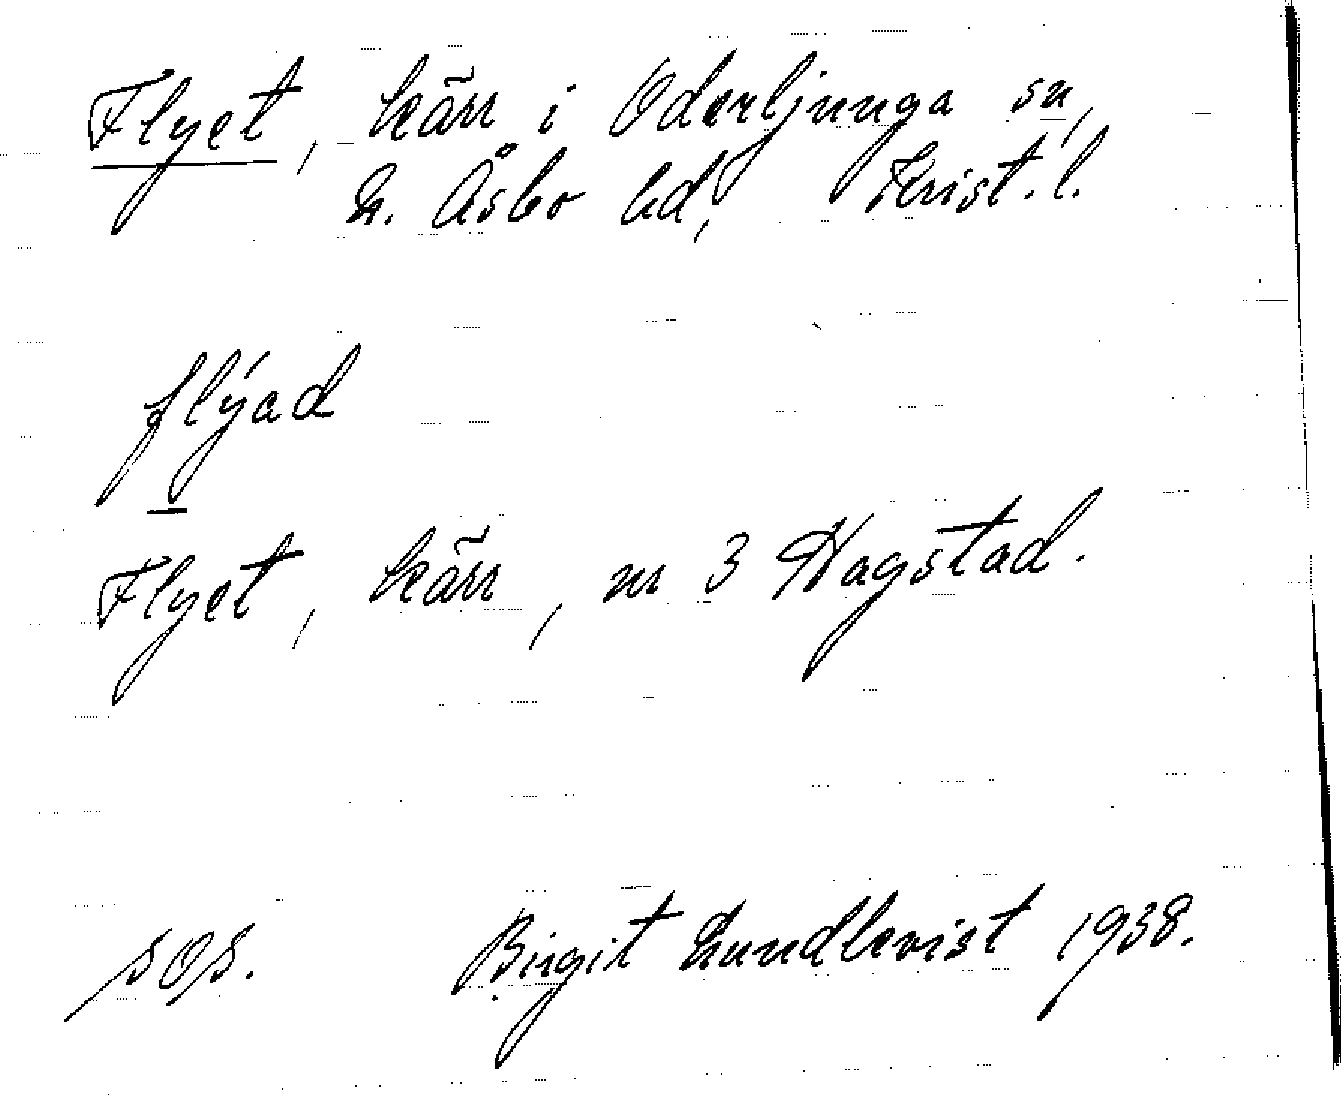 Flyet, kärr i Oderljunga sn,
N. Åsbo hd, Krist. l.
flýad
Flyet, kärr, nr 3 Hagstad.
sos. Birgit Lundkvist 1938.